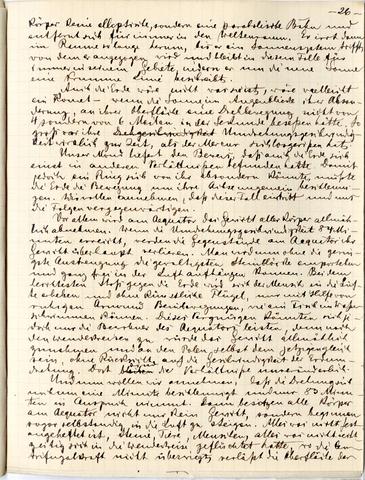 —26—
Körper keine elliptische, sondern eine parabolische Bahn und
entfernt sich für immer in den Weltenraum. Er irrt dann
im Raume so lange herum, bis er ein Sonnensystem trifft,
von dem er angezogen wird und bleibt in diesem Falle
in seinem Gebiete, indem er um die neue Sonne
eine krumme Linie beschreibt.
Auch die Erde wäre nicht was sie ist, wäre vielleicht
ein Komet — wenn die Sonne im Augenblicke ihrer Abson-
derung, an ihrer Oberfläche eine Drehbewegung nicht von
4, sondern von 6 Meilen in der Sekunde besessen hätte. So
groß war ihre Umdrehungsgeschwindig-
keit wirklich zur Zeit, als der Merkur sich losgerissen hat.
Unser Mond liefert den Beweis, daß auch die Erde sich
einst in anderen Verhältnissen befunden hatte. Damit
jedoch ein Ring sich von ihr absondern könnte, müßte
die Erde die Bewegung um ihre Achse ungemein beschleuni-
gen. Wir wollen annehmen, daß dieser Fall eintritt und uns
die Folgen vergegenwärtigen.
Vor allem wird am Äquator das Gewicht aller Körper allmäh-
lich abnehmen. Wenn die Umdrehungsgeschwindigkeit 84 Mi-
nuten erreicht, werden die Gegenstände am Äquator ihr
Gewicht überhaupt verlieren. Man wird ohne die gering-
ste Anstrengung die gewaltigsten Steinblöcke emporheben
und ganz frei in der Luft aufhängen können. Bei dem
leichtesten Stoß gegen die Erde wird sich der Mensch in die Luft
erheben und ohne künstliche Flügel, nur mit Hilfe
Arm- und Beinbewegungen, wie ein Fisch im Wasser
schwimmen können. Dieses Vergnügen könnten sich je-
doch nur die Bewohner des Äquators leisten, denn nach
den Wendekreisen zu, würde das Gewicht allmählich
zunehmen und an den Polen, selbst dem jetzigen gleich
sein, ohne Rücksicht auf die Geschwindigkeit der Erdum-
drehung. Dort blieben die Verhältnisse unveränderlich.
Und nun wollen wir annehmen, daß die Drehung sich
mit um eine Minute beschleunigt und nur 83 Minu-
ten in Anspruch nimmt. Dann besitzen alle Körper
am Äquator nicht nur kein Gewicht, sondern beginnen
sogar selbständig, in die Luft zu steigen. Alles was nicht fest
angeheftet ist, Steine, Tiere, Menschen, alles was nicht recht-
zeitig sich in die Wendekreise geflüchtet hätte, wo die Zen-
trifugalkraft nicht überwiegt, verläßt die Oberfläche der